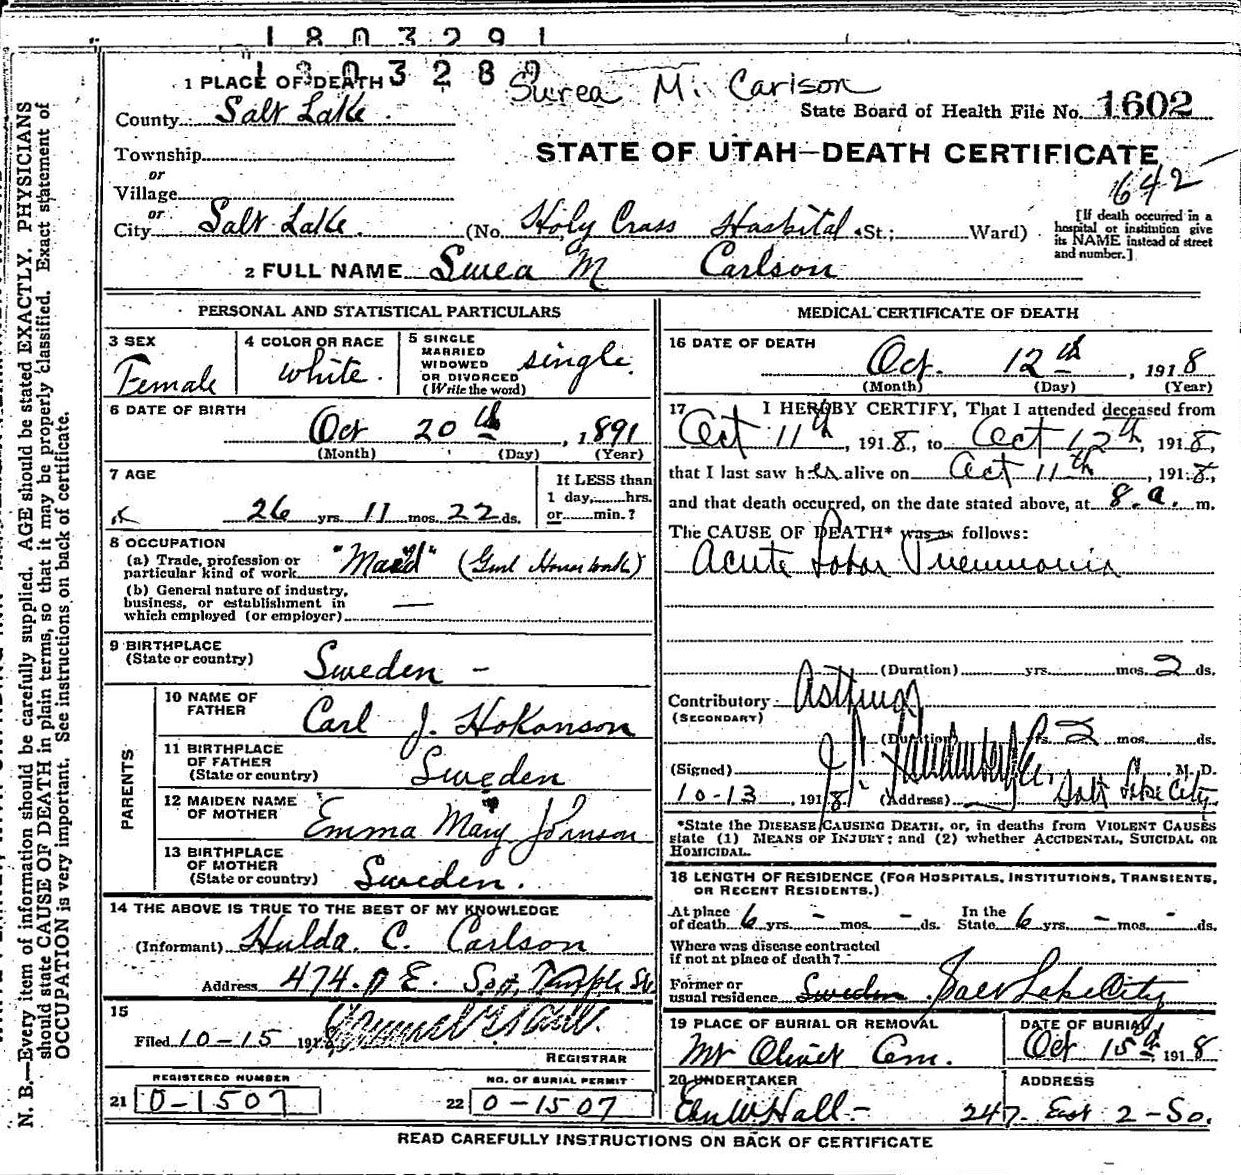 1803291
1303289
Swea M. Carlson
1 PLACE OF DEATH
State Board of Health File No. 1602
County Salt Lake.
STATE OF UTAH—DEATH CERTIFICATE
Township
or
642
Village
or
City Salt Lake. (No. Holy Cross Hospital St.; Ward)
[If death occurred in a hospital or institution give its NAME instead of street and number.]
2 FULL NAME Swea M Carlson
PERSONAL AND STATISTICAL PARTICULARS
3 SEX Female
4 COLOR OR RACE white.
5 SINGLE MARRIED WIDOWED OR DIVORCED (Write the word) single.
6 DATE OF BIRTH
Oct 20th, 1891
(Month) (Day) (Year)
7 AGE
26 yrs. 11 mos. 22 ds.
If LESS than 1 day, hrs. or min.?
8 OCCUPATION
(a) Trade, profession or particular kind of work "Maid" (Genl House work)
(b) General nature of industry, business, or establishment in which employed (or employer) —
9 BIRTHPLACE (State or country) Sweden -
PARENTS
10 NAME OF FATHER Carl J. Hokanson
11 BIRTHPLACE OF FATHER (State or country) Sweden
12 MAIDEN NAME OF MOTHER Emma Mary Johnson
13 BIRTHPLACE OF MOTHER (State or country) Sweden.
14 THE ABOVE IS TRUE TO THE BEST OF MY KNOWLEDGE
(Informant) Hulda. C. Carlson
Address 474. E. So. Temple St
15
Filed 10-15 1918
REGISTRAR
REGISTERED NUMBER
21 0-1507
NO. OF BURIAL PERMIT
22 0-1507
MEDICAL CERTIFICATE OF DEATH
16 DATE OF DEATH
Oct. 12th, 1918
(Month) (Day) (Year)
17 I HEREBY CERTIFY, That I attended deceased from
Oct 11th, 1918, to Oct 12th, 1918,
that I last saw her alive on Oct 11th, 1918,
and that death occurred, on the date stated above, at 8.a. m.
The CAUSE OF DEATH* was as follows:
Acute Lobar Pneumonia
(Duration) yrs. mos. 2 ds.
Contributory Asthma
(SECONDARY)
(Duration) yrs. 2 mos. ds.
(Signed) M. D.
10-13, 1918 (Address) Salt Lake City.
*State the DISEASE CAUSING DEATH, or, in deaths from VIOLENT CAUSES
state (1) MEANS OF INJURY; and (2) whether ACCIDENTAL, SUICIDAL OR
HOMICIDAL.
18 LENGTH OF RESIDENCE (FOR HOSPITALS, INSTITUTIONS, TRANSIENTS, OR RECENT RESIDENTS.)
At place of death 6 yrs. - mos. - ds. In the State 6 yrs. - mos. - ds.
Where was disease contracted if not at place of death?
Former or usual residence Sweden. Salt Lake City
19 PLACE OF BURIAL OR REMOVAL
Mt Olivet Cem.
DATE OF BURIAL
Oct 15th 1918
20 UNDERTAKER
Eber W Hall -
ADDRESS
247. East 2-So.
READ CAREFULLY INSTRUCTIONS ON BACK OF CERTIFICATE
N. B.—Every item of information should be carefully supplied. AGE should be stated EXACTLY. PHYSICIANS
should state CAUSE OF DEATH in plain terms, so that it may be properly classified. Exact statement of
OCCUPATION is very important. See instructions on back of certificate.